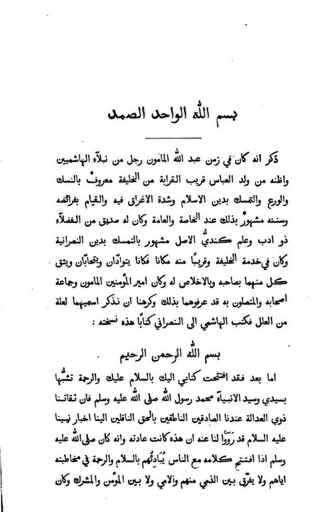 بسم الله الواحد الصمد
ذكر انه كان في زمن عبد الله المامون رجل من نبلآء الهاشميين
واظنه من ولد العباس قريب القرابة من الخليفة معروف بالنسك
والورع والتمسك بدين الاسلام وشدة الاغراق فيه والقيام بفرائضه
وسننه مشهور بذلك عند الخاصة والعامة وكان له صديق من الفضلآء
ذو ادب وعلم كنديّ الاصل مشهور بالتمسك بدين النصرانية
وكان في خدمة الخليفة وقريبًا منه مكانا فكانا يتوادّان ويتحابّان ويثق
كل منهما بصاحبه وبالاخلاص له وكان امير المؤمنين المامون وجماعة
اصحابه والمتصلون به قد عرفوهما بذلك وكرهنا ان نذكر اسميهما لعلة
من العلل فكتب الهاشمي الى النصراني كتابًا هذه نسخته :
بسم الله الرحمن الرحيم
اما بعد فقد افتتحت كتابي اليك بالسلام عليك والرحمة تشبّها
بسيدي وسيد الانبيآء محمد رسول الله صلى الله عليه وسلم فان ثقاتنا
ذوي العدالة عندنا الصادقين الناطقين بالحق الناقلين الينا اخبار نبينا
عليه السلام قد رَوَوا لنا عنه ان هذه كانت عادته وانه كان صلى الله عليه
وسلم اذا افتتح كلامه مع الناس يُبادئهم بالسلام والرحمة في مخاطبته
اياهم ولا يفرّق بين الذمي منهم والامي ولا بين المؤمن والمشرك وكان